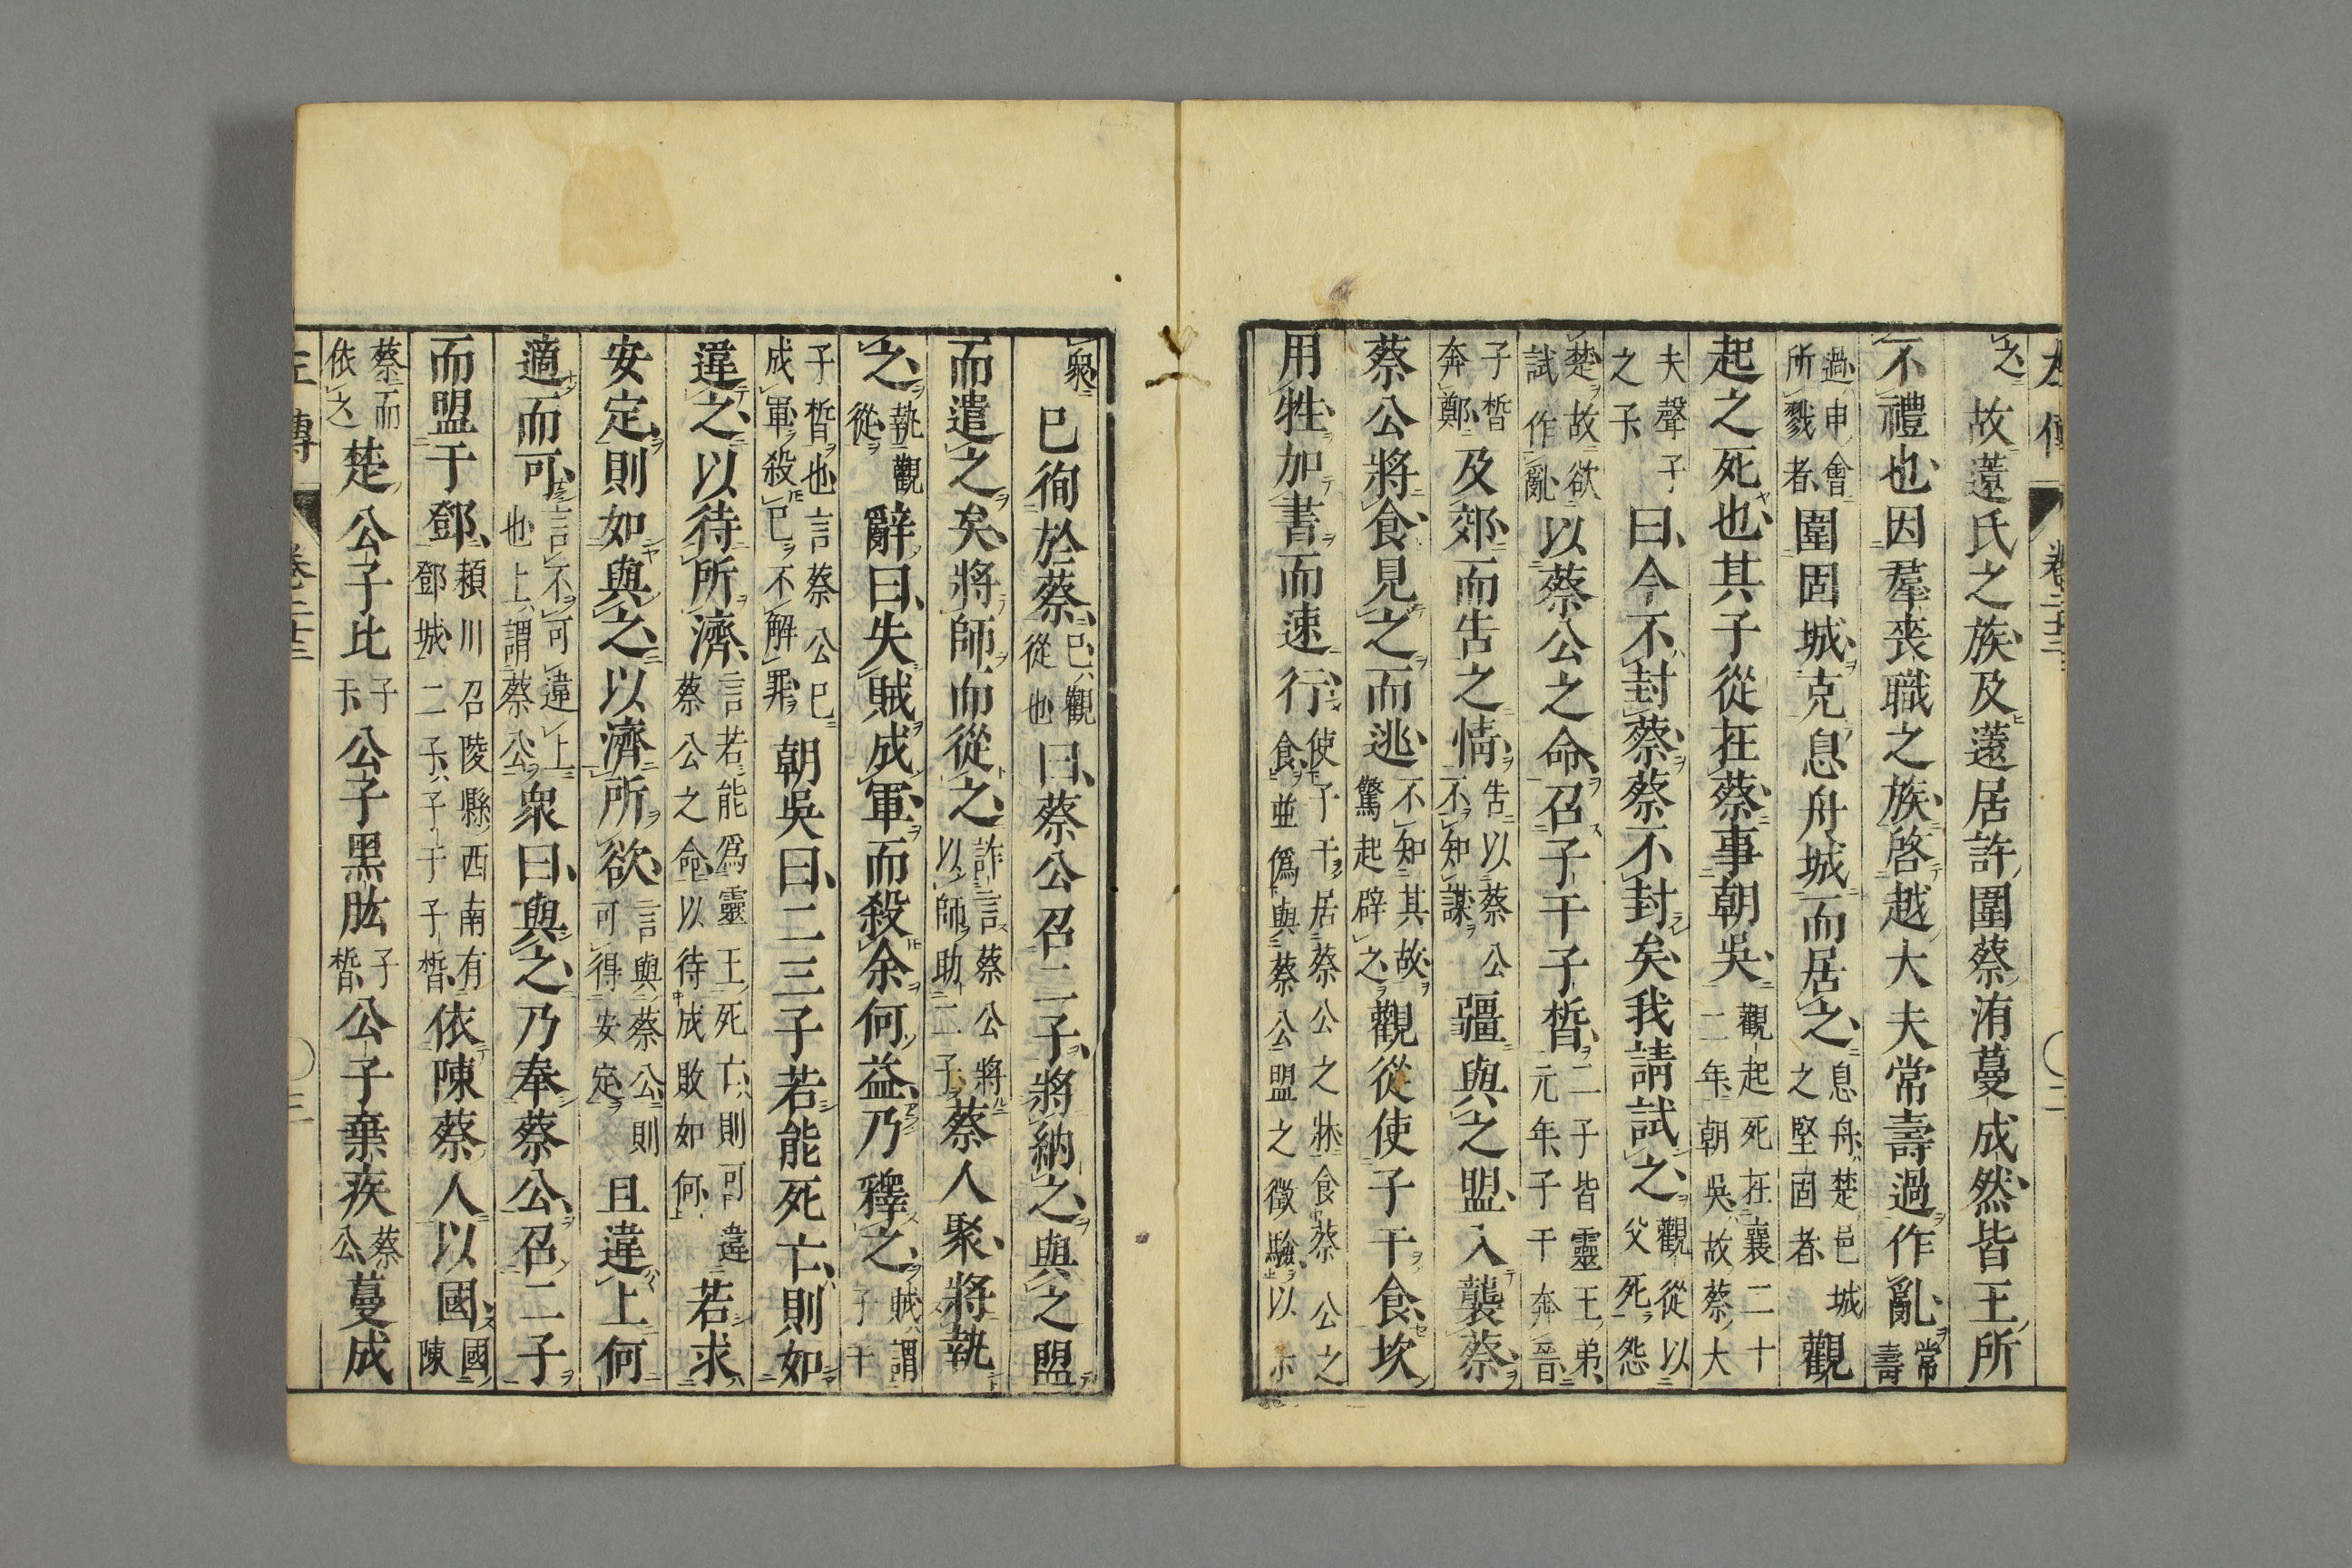 之故薳氏之族及薳居許圍蔡洧蔓成然皆王所
不禮也因羣喪職之族啓越大夫常壽過作亂常壽
過申會所戮者圍固城克息舟城而居之息舟楚邑城之堅固者觀
起之死也其子從在蔡事朝吳觀起死在襄二十二年朝吳故蔡大
夫聲子之子曰今不封蔡蔡不封矣我請試之觀從以父死怨
楚故欲試作亂以蔡公之命召子干子皙二子皆靈王弟元年子干奔晉
子皙奔鄭及郊而告之情告以蔡公不知謀疆與之盟入襲蔡
蔡公將食見之而逃不知其故驚起辟之觀從使子干食坎
用牲加書而速行使子干居蔡公之牀食蔡公之食並僞與蔡公盟之徵驗以示
眾已徇於蔡已觀從也曰蔡公召二子將納之與之盟
而遣之矣將師而從之詐言蔡公將以師助二子蔡人聚將執
之執觀從辭曰失賊成軍而殺余何益乃釋之賊謂子干
子皙也言蔡公已成軍殺已不解罪朝吳曰二三子若能死亡則如
違之以待所濟言若能爲靈王死亡則可違蔡公之命以待成敗如何若求
安定則如與之以濟所欲言與蔡公則可得安定且違上何
適而可言不可違上也上謂蔡公衆曰與之乃奉蔡公召二子
而盟于鄧潁川召陵縣西南有鄧城二子子干子皙依陳蔡人以國國陳
蔡而依之楚公子比子干公子黑肱子皙公子棄疾蔡公蔓成